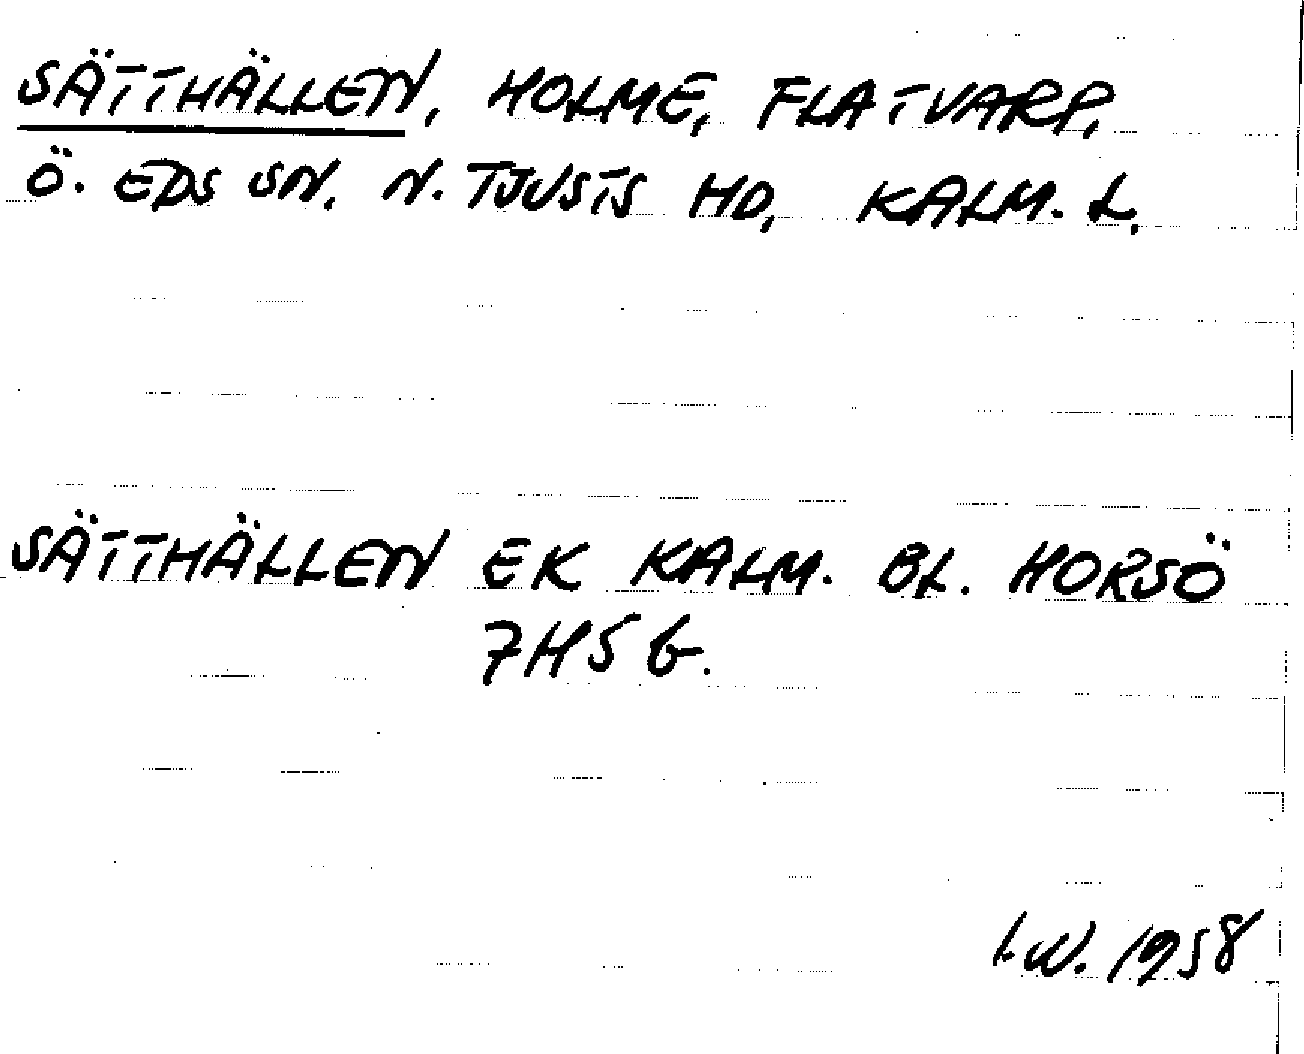 SÄTTHÄLLEN, HOLME, FLATVARP,
Ö. EDS SN. N. TJUSTS HD, KALM. L.
SÄTTHÄLLEN EK KALM. BL. HORSÖ
7H5b.
I.W. 1958